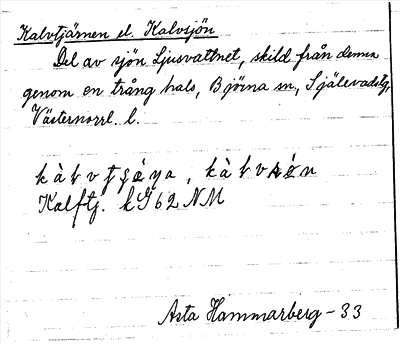 Kalvtjärnen el. Kalvsjön
Del av sjön Ljusvattnet, skild från denna
genom en trång hals, Björna sn, Själevads tg,
Västernorrl. l.
Kalftj. kG 62 NM
Asta Hammarberg - 33